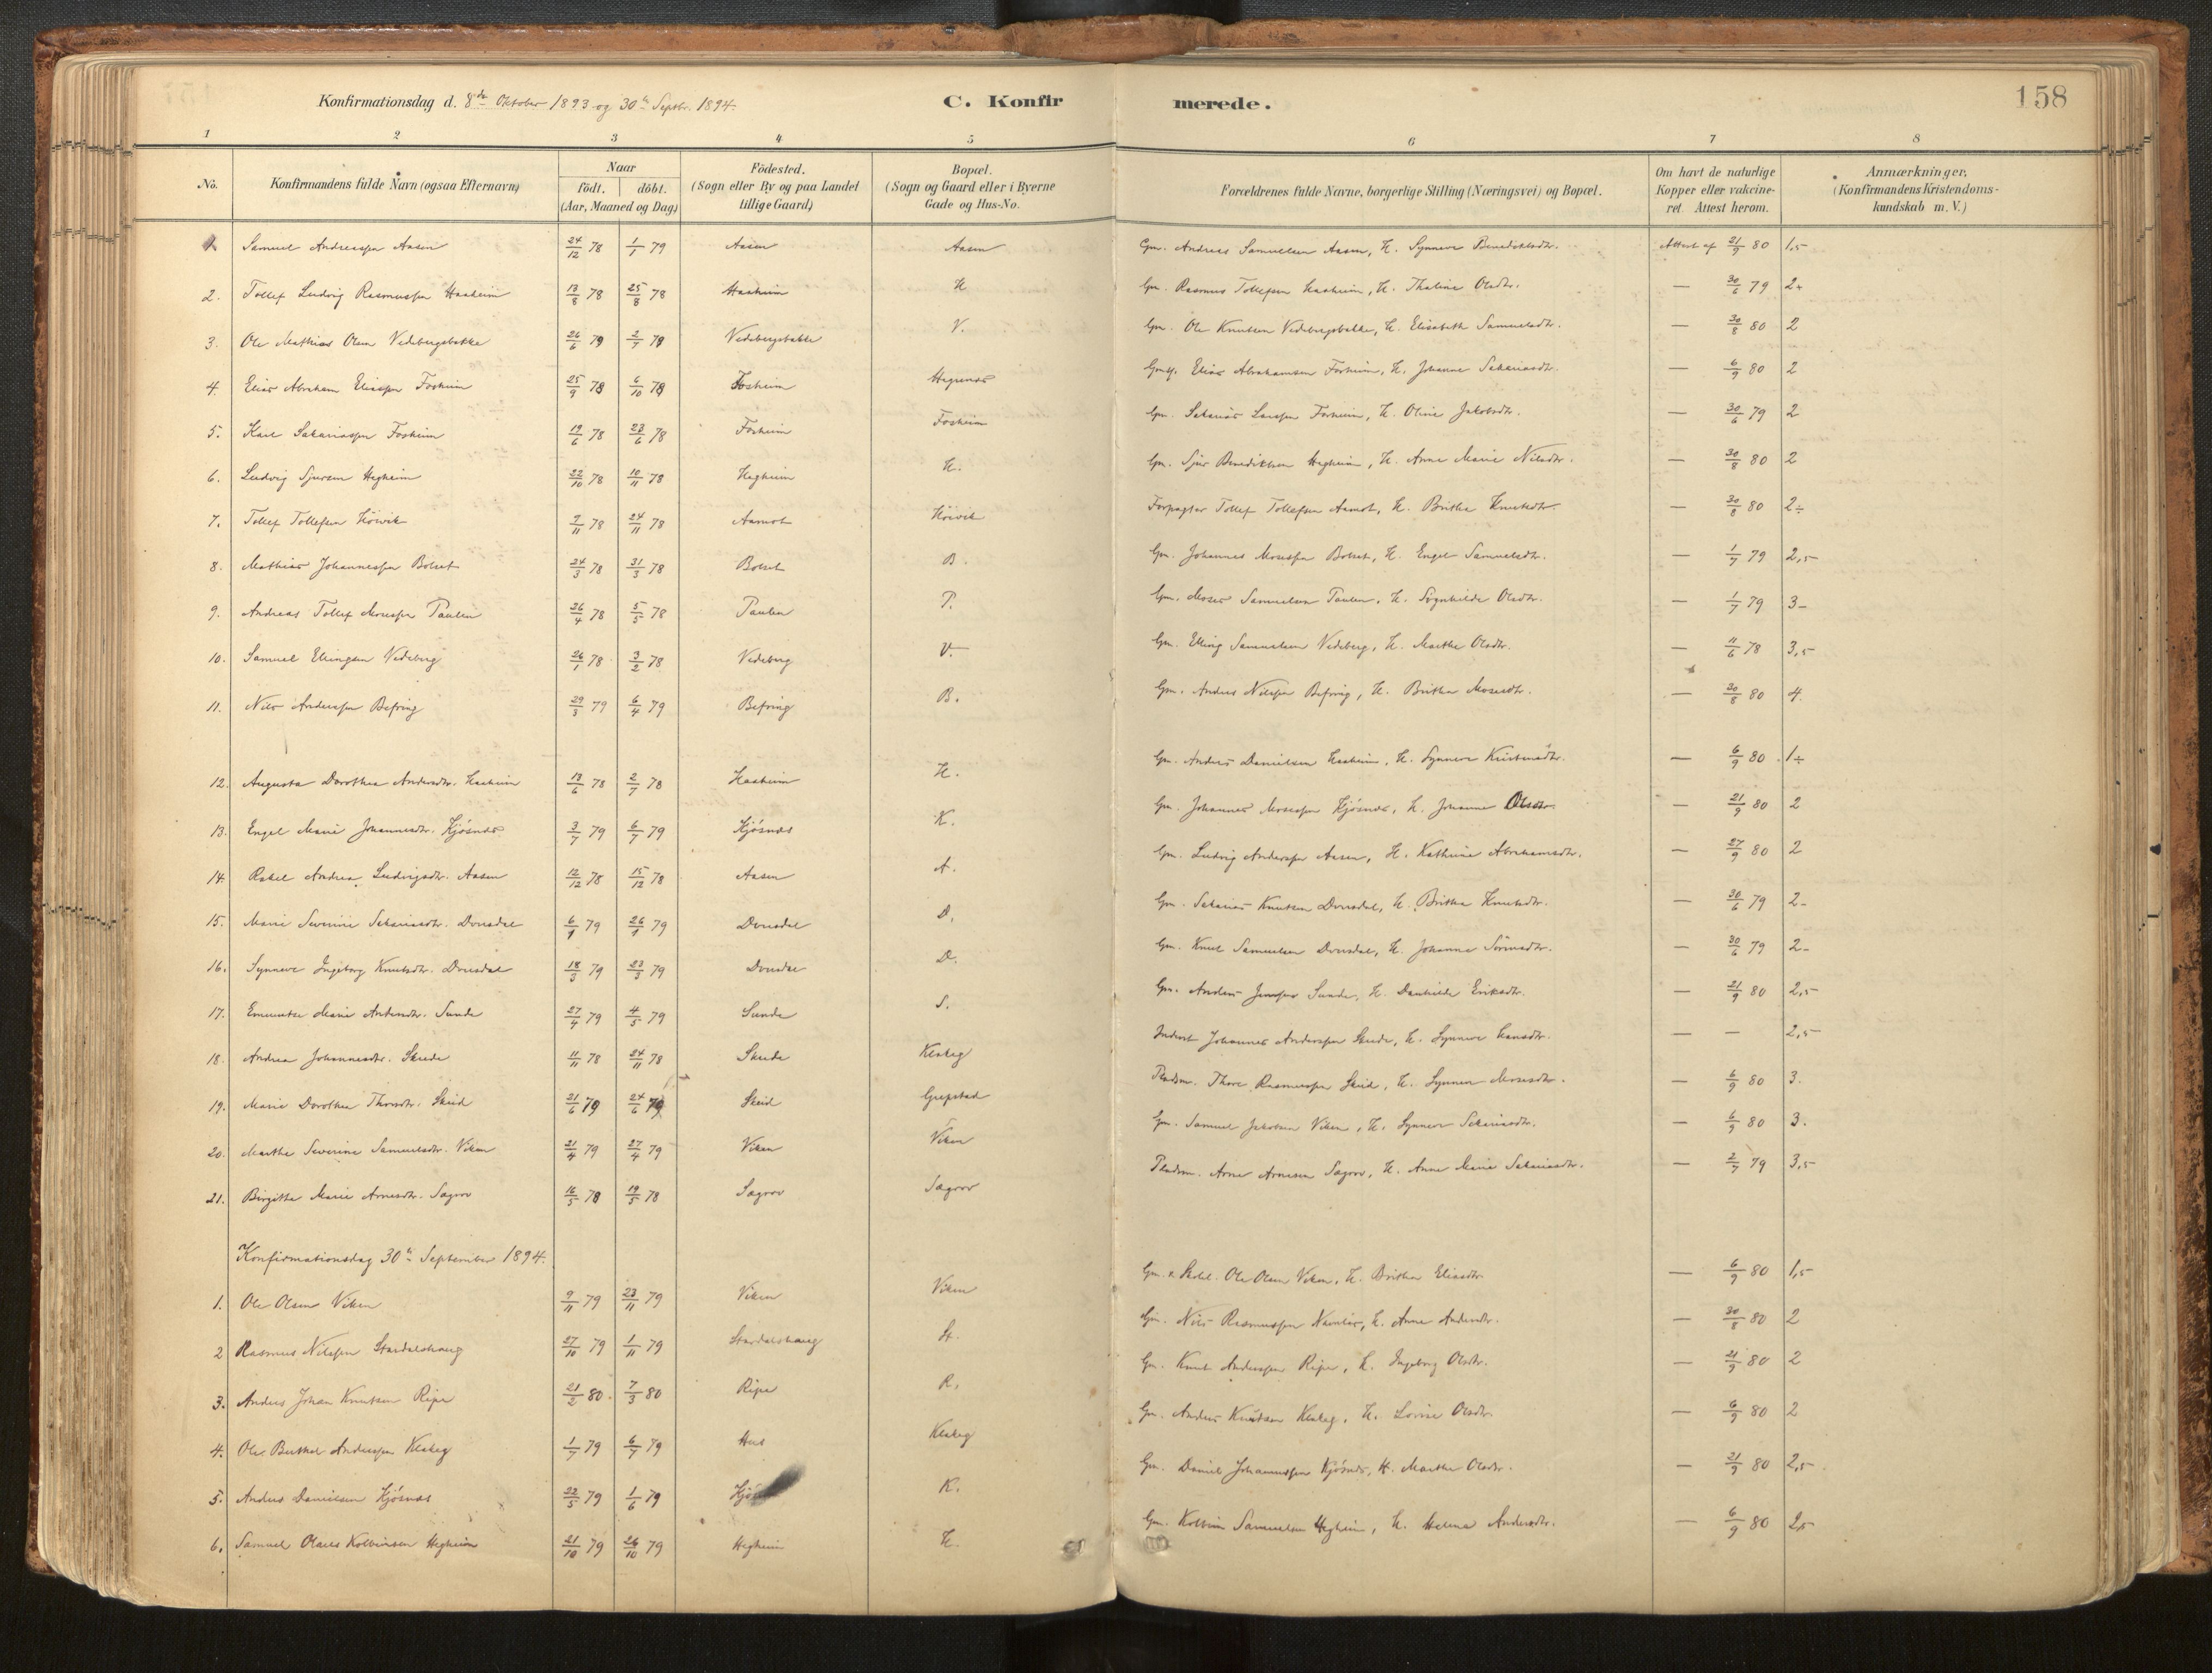 Konfirmationsdag d. 8de Oktober 1893 og 30te Septbr. 1894. C. Konfirmerede. 158
1 2 3 4 5 6 7 8
No. Konfirmandens fulde Navn (ogsaa Efternavn) Naar födt. döbt. (Aar, Maaned og Dag.) Födested. (Sogn eller By og paa Landet tillige Gaard.) Bopæl. (Sogn og Gaard eller i Byerne Gade og Hus-No. Forældrenes fulde Navne, borgerlige Stilling (Næringsvei) og Bopæl. Om havt de naturlige Kopper eller vakcineret. Attest herom. Anmærkninger, (Konfirmandens Kristendomskundskab m. V.)
1. Samuel Andreassen Aasen 24/12 78 1/1 79 Aasen Aasen Gm. Andreas Samuelsen Aasen, H. Synneve Benediktsdtr. Attest af 21/9 80 1,5
2. Tollef Ludvig Rasmussen Haaheim 13/8 78 25/8 78 Haaheim H Gm. Rasmus Tollefsen Haaheim, H. Thaline Olsdtr. — 30/6 79 2÷
3. Ole Mathias Olsen Vedebergsbakke 26/6 79 2/7 79 Vedebergsbakke V. Gm. Ole Knutsen Vedebergsbakke, H. Elisabeth Samuelsdtr. — 30/8 80 2
4. Elias Abraham Eliassen Fosheim 25/9 78 6/10 78 Fosheim Hegrenes Elias Abrahamsen Fosheim, H. Johanne Sakariasdtr. — 6/9 80 2
5. Karl Sakariassen Fosheim 19/6 78 23/6 78 Fosheim Fosheim Gm. Sakarias Larssen Fosheim, H. Oline Jakobsdtr. — 30/6 79 2
6. Ludvig Sjursen Hegheim 22/10 78 10/11 78 Hegheim H. Gm. Sjur Benediktsen Hegheim, H. Anne Marie Nilsdtr. — 30/8 80 2
7. Tollef Tollefsen Höivik 9/11 78 24/11 78 Aamot Höivik Forpagter Tollef Tollefsen Aamot, H. Brithe Knutsdtr. — 30/8 80 2÷
8. Mathias Johannessen Bolset 24/3 78 31/3 78 Bolset B. Gm. Johannes Mosessen Bolset, H. Engel Samuelsdtr. — 1/7 79 2,5
9. Andreas Tollef Mosessen Paulen 26/4 78 5/5 78 Paulen P. Gm. Moses Samuelsen Paulen, H. Sygnhilde Olsdtr. — 1/7 79 3-
10. Samuel Ellingsen Vedeberg 26/1 78 3/2 78 Vedeberg V. Gm. Elling Samuelsen Vedeberg, H. Marthe Olsdtr. — 11/6 78 3,5
11. Nils Anderssen Befring 29/3 79 6/4 79 Befring B. Gm. Anders Nilssen Befring, H. Brithe Mosesdtr. — 30/8 80 4.
12. Augusta Dorothea Andersdtr. Haaheim 13/6 78 2/7 78 Haaheim H. Gm. Anders Danielsen Haaheim, H. Synneve Kristensdtr. — 6/9 80 1÷
13. Engel Marie Johannesdtr. Kjösnes 3/7 79 6/7 79 Kjösnes K. Gm. Johannes Mosessen Kjösnes, H. Johanne Olsdtr. — 21/9 80 2
14. Rakel Andrea Ludvigsdtr. Aasen 12/12 78 15/12 78 Aasen A. Gm. Ludvig Anderssen Aasen, H. Kathrine Abrahamsdtr. — 27/9 80 2
15. Marie Severine Sakariasdtr. Dvusdal 6/1 79 26/1 79 Dvusdal D. Gm. Sakarias Knutsen Dvusdal, H. Brithe Knutsdtr. — 30/6 79 2-
16. Synneve Ingeborg Knutsdtr. Dvusdal 18/3 79 23/3 79 Dvusdal D. Gm. Knut Samuelsen Dvusdal, H. Johanne Sörensdtr. — 30/6 79 2-
17. Marie Andersdtr. Sunde 27/4 79 4/5 79 Sunde S. Gm. Anders Jenssen Sunde, H. Eriksdtr. — 21/9 80 2,5
18. Andrea Johannesdtr. Skrede 11/11 78 24/11 78 Skrede Klakeg Inderst Johannes Anderssen Skrede, H. Synneve Hansdtr. — — 2,5
19. Marie Dorothea Thoresdtr. Skeid 21/6 79 24/6 79 Skeid Grepstad Pladsm. Thore Rasmussen Skeid, H. Synneve Mosesdtr. — 6/9 80 3.
20. Marthe Severine Samuelsdtr. Viken 21/4 79 27/4 79 Viken Viken Gm. Samuel Jakobsen Viken, H. Synneve Sakariasdtr. — 6/9 80 3.
21. Birgitte Marie Arnesdtr. Sagrov 16/5 78 19/5 78 Sagrov Sagrov Pladsm. Arne Arnesen Sagrov, H. Anne Marie Sakariasdtr. — 2/7 79 3,5
Konfirmationsdag 30te September 1894.
1. Ole Olsen Viken 9/11 79 23/11 79 Viken Viken Gm. Ole Olsen Viken, H. Brithe Eliasdtr. — 6/9 80 1,5
2 Rasmus Nilssen Stardalshaug 27/10 79 1/11 79 Stardalshaug St. Gm. Nils Rasmussen H. Anne Andersdtr. — 30/8 80 2
3. Anders Johan Knutsen Ripe 21/2 80 7/3 80 Ripe R. Gm. Knut Anderssen Ripe, H. Ingeborg Olsdtr. — 21/9 80 2
4. Ole Berthel Anderssen Klakeg 1/7 79 6/7 79 Hus Klakeg Gm. Anders Knudsen Klakeg, H. Lovise Olsdtr. — 6/9 80 2
5. Anders Danielsen Kjösnes 22/5 79 1/6 79 K. Gm. Daniel Johannessen Kjösnes, H. Marthe Olsdtr. — 21/9 80 2,5
6. Samuel Olaus Kolbeinsen Hegheim 21/10 79 26/10 79 Hegheim H. Gm. Kolbein Samuelsen Hegheim, H. Helene Andersdtr. — 6/9 80 2,5